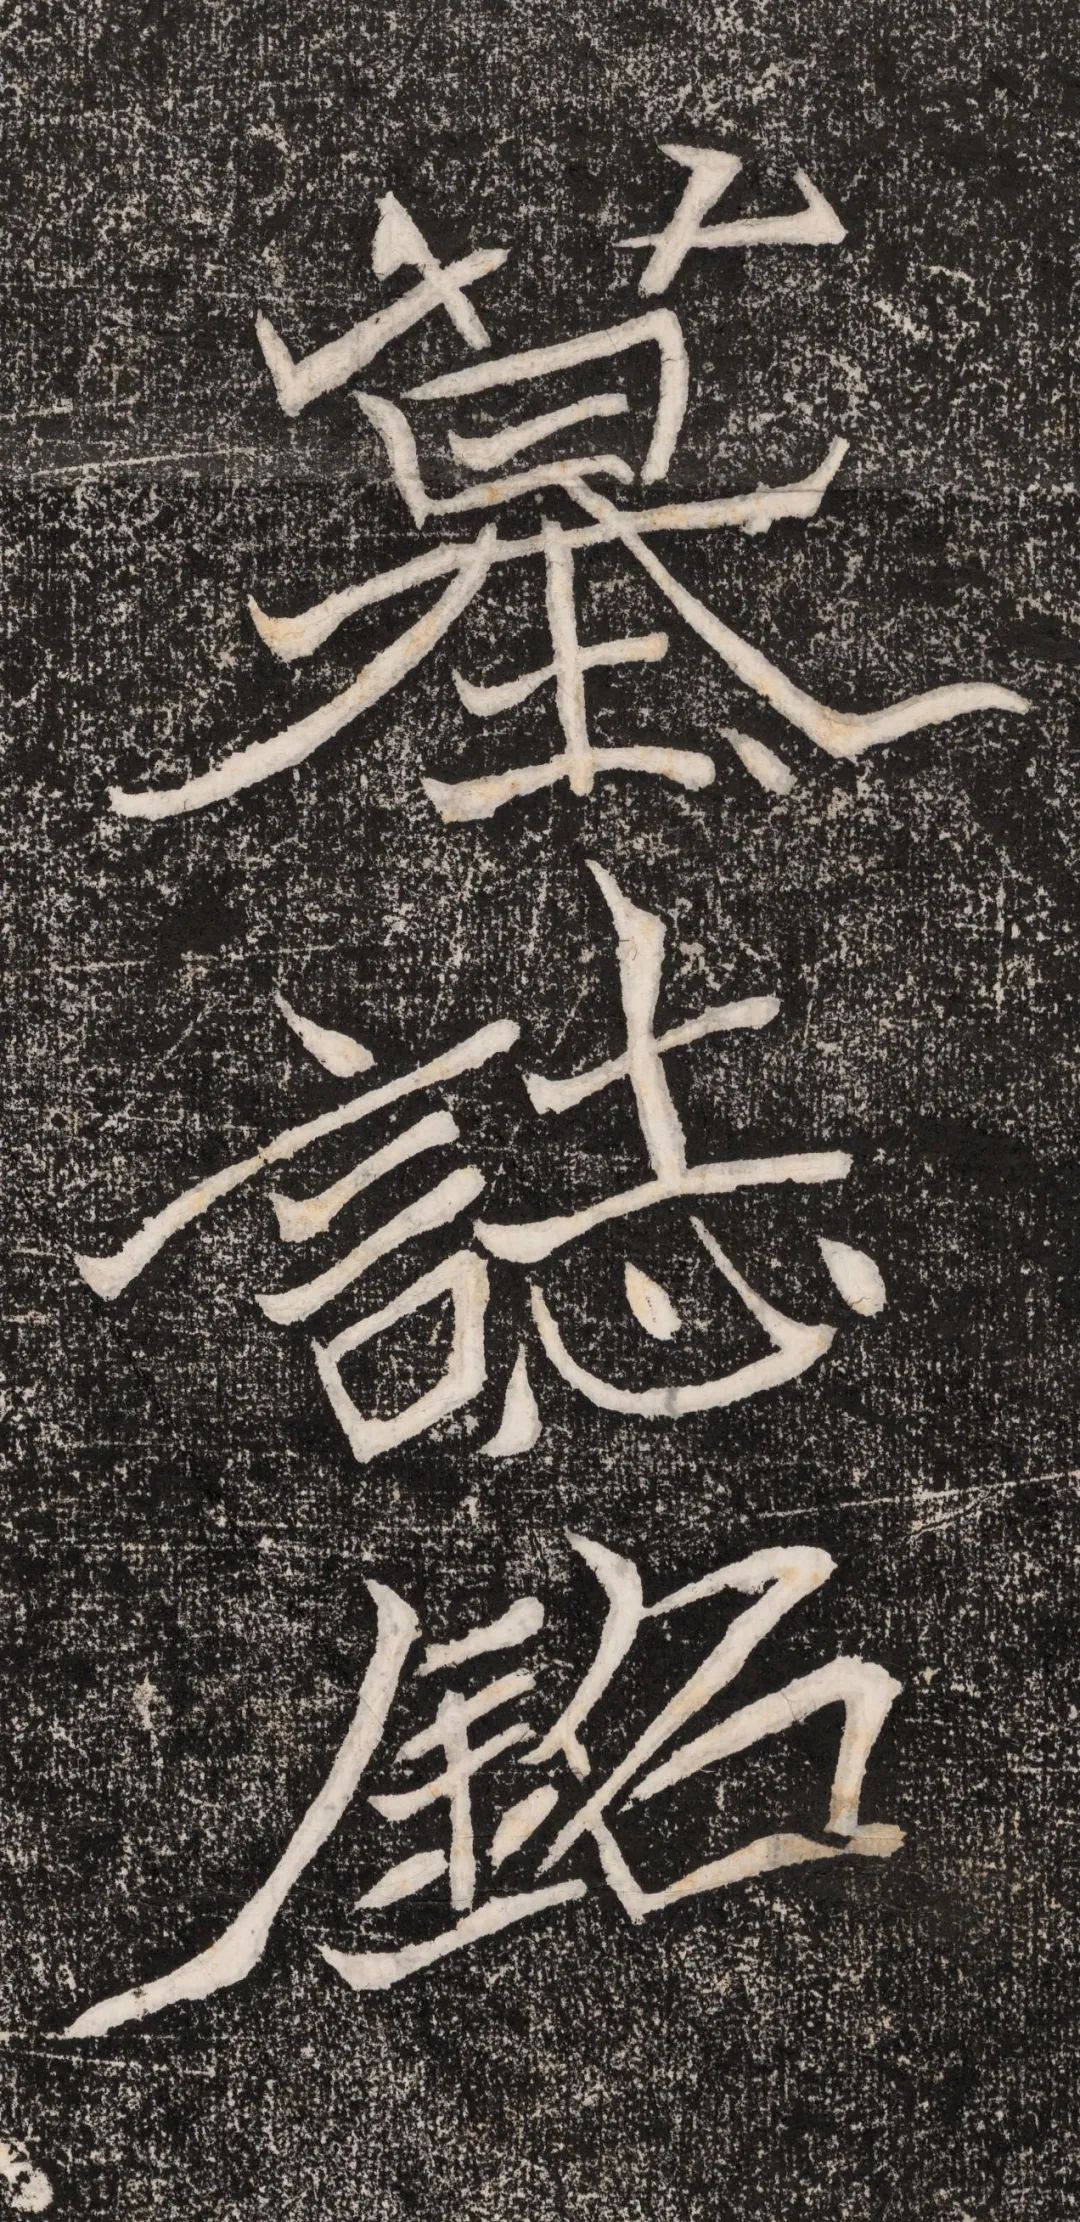 墓誌銘